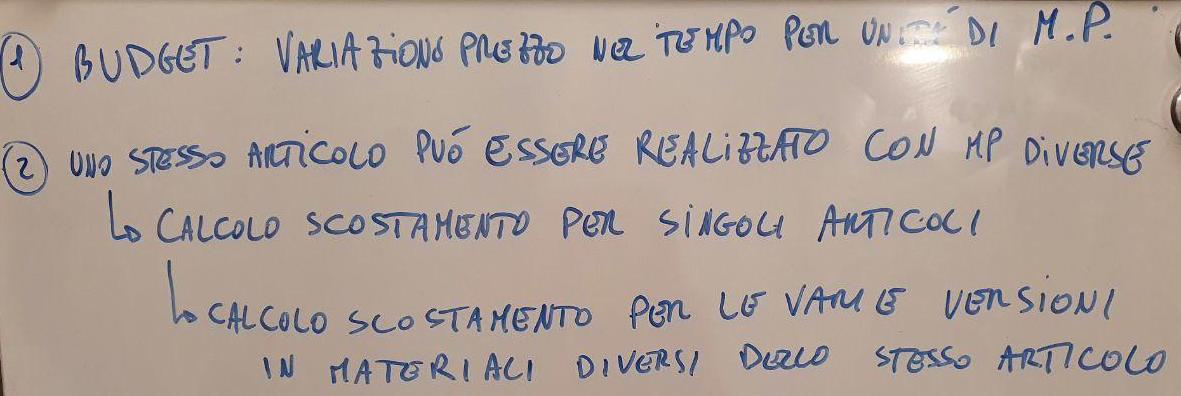 ① BUDGET: VARIAZIONE PREZZO NEL TEMPO PER UNITÀ DI M.P.
② UNO STESSO ARTICOLO PUÓ ESSERE REALIZZATO CON MP DIVERSE
↳ CALCOLO SCOSTAMENTO PER SINGOLI ARTICOLI
↳ CALCOLO SCOSTAMENTO PER LE VARIE VERSIONI
IN MATERIALI DIVERSI DELLO STESSO ARTICOLO